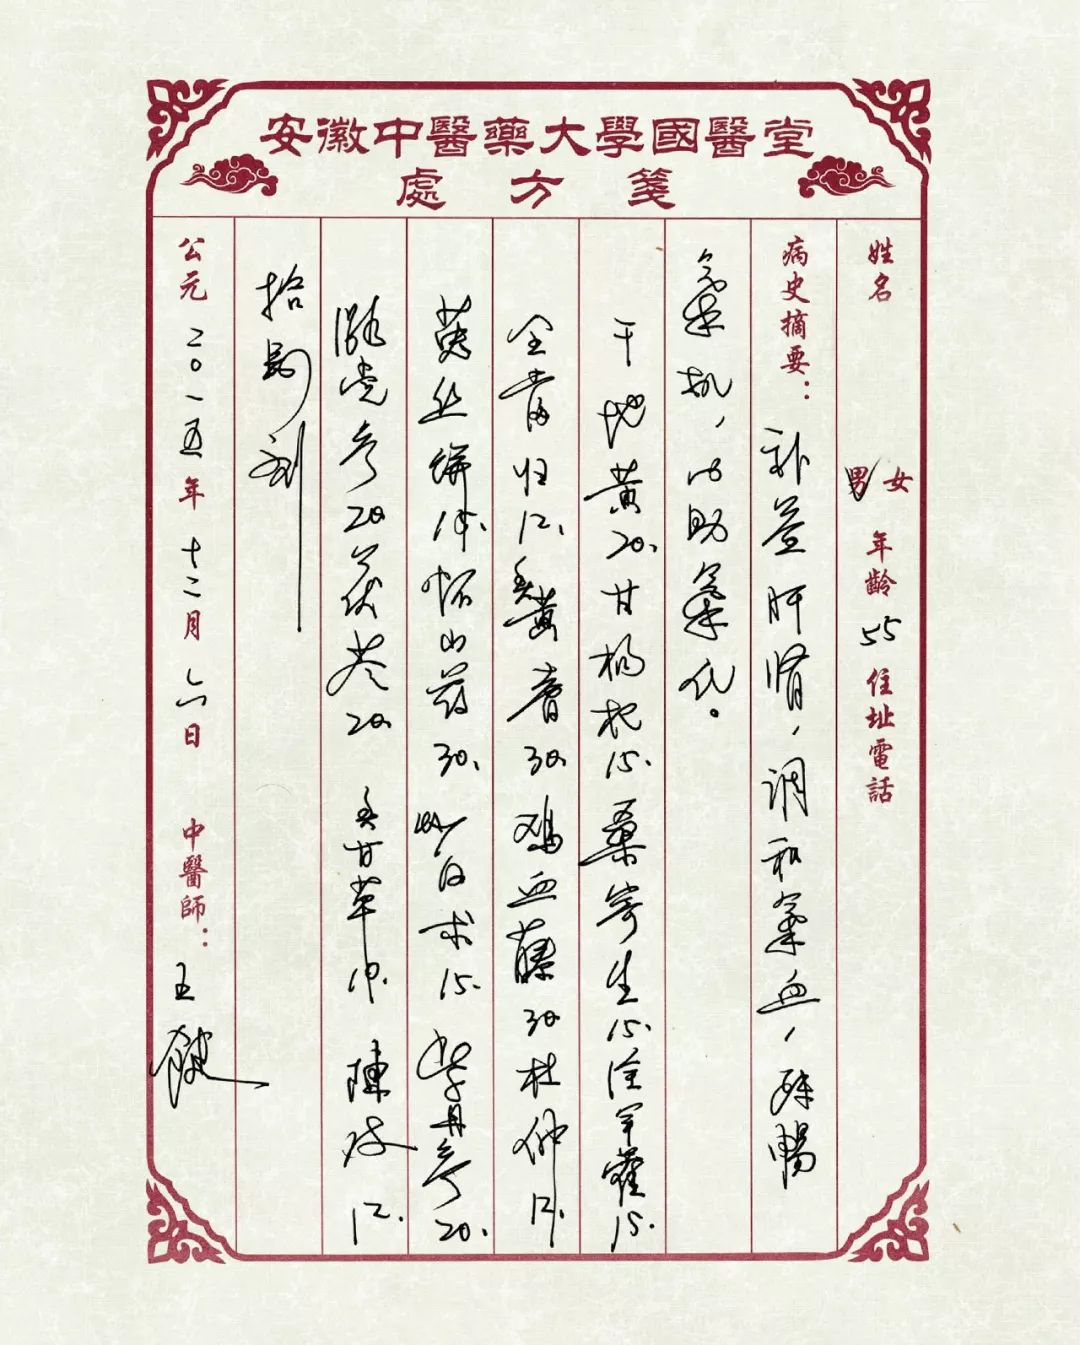 安徽中醫藥大學國醫堂
處方箋
姓名 男 女 年齡 55 住址電話
病史摘要： 补益肝肾，调和氣血，疏暢
氣机，以助氣化。
干地黄20. 甘枸杞15. 桑寄生15. 淫羊藿15.
全当归12. 炙黄耆30 鸡血藤30 杜仲12.
菟丝饼15. 怀山药30. 白术15. 紫丹参20.
潞党参20 茯苓20 炙甘草10. 陳皮12.
拾剂
公元二〇一五年十二月六日 中醫師： 王键